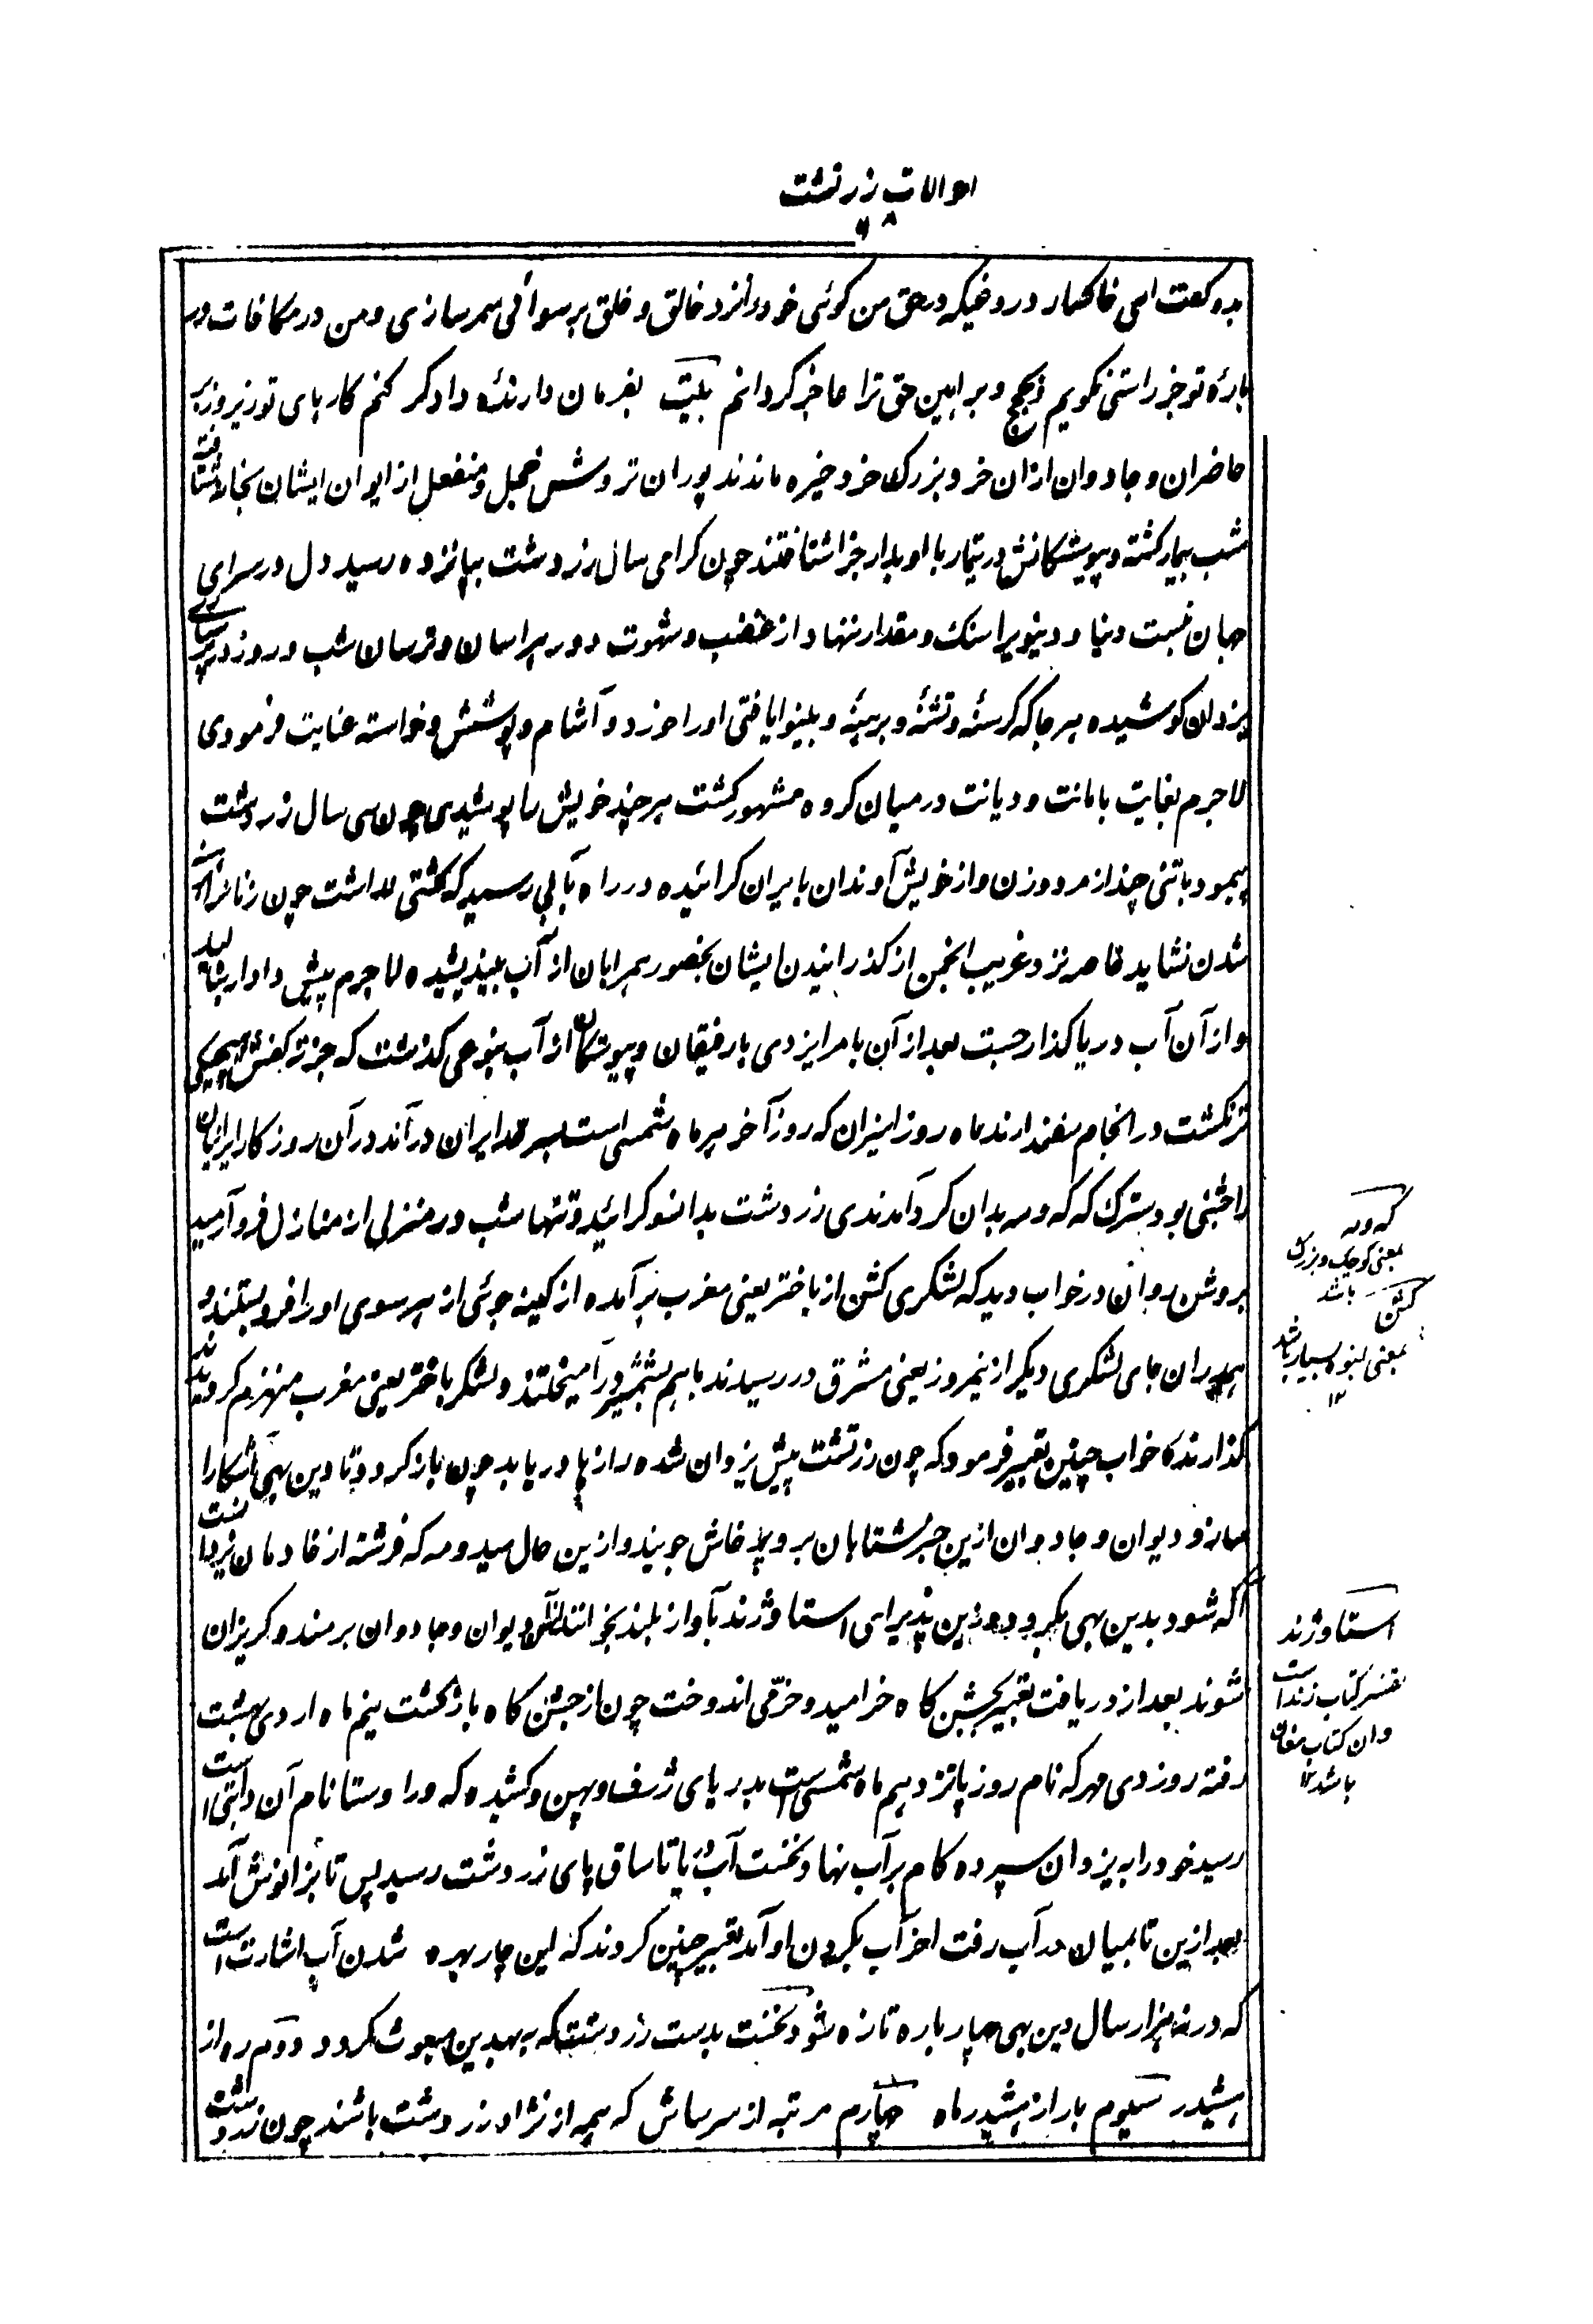 احوالات زرتشت
بدو گفت ای خاکسار دروغیکه در حق من گوئی خود را نزد خالق و خلق برسوائی سمر سازی و من در مکافات در
بارهٔ تو جز راستی نگویم و بحجج و براهین حق ترا عاجز گردانم بیت بفرمان دارندهٔ دادگر کنم کارهای تو زیر و زبر
حاضران و جادوان ازان خرد بزرگ خرد خیره ماندند پوران تروش خجل و منفعل از ایوان ایشان بخانه شتافت
شب بیمار گشته و پیوستگانش در تیمار با او بدار جزا شتافتند چون گرامی سال زردشت بپانزده رسید دل در سرای
جهان نبست دنیا و دنیوی را سنگ و مقدار ننهاد از غضب و شهوت دور هراسان و ترسان شب و روز در پرستاری
یزدان کوشیده هر جا که گرسنه و تشنه و برهنه و بینوا یافتی او را خورد و آشام و پوشش و خواسته عنایت فرمودی
لاجرم بغایت بامانت و دیانت در میان گروه مشهور گشت هر چند خویش را پوشیدی چون سی سال زردشت
پیمود با تنی چند از مرد و زن و از خویش آوندان بایران گرائیده در راه بآبی رسید که کشتی نداشت چون زنانرا برهنه
شدن نشاید خاصه نزد غریب انجمن از گذرانیدن ایشان بحضور همراهان از آب بیندیشیده لاجرم پیش دادار بنالید
و از آن آب دریا گذار جست بعد از آن بامر ایزدی با رفیقان و پیوستگان از آب بنوعی گذشت که جز ته کفش هیچیکی
تر نگشت در انجام سفندارمذ ماه روز انیران که روز آخر هر ماه شمسی است بسرحد ایران در آمد در آن روزگار ایرانیان
را جشنی بود سترک که که و مه بدان گرد آمدندی زردشت بدانسو گرائید و تنها شب در منزلی از منازل فرو آرمید
بروشن روان در خواب دید که لشکری گشن از باختر یعنی مغرب برآمده از کینه جوئی از هر سوی او را فرو بستند و
بهمان جای لشکری دیگر از نیمروز یعنی مشرق در رسیدند با هم بشمشیر در آمیختند و لشکر باختر یعنی مغرب منهزم گردیدند
گذارنده خواب چنین تعبیر فرمود که چون زرتشت پیش یزدان شده رازها دریابد چون باز گردد تا دین بهی آشکارا
سازد دیوان و جادوان ازین خبر شتابان بر وی پرخاش جویند و ازین حال میدیومه که فرشته از خادمان یزدانست
آگه شود بدین بهی بگرود دین پذیرای استا و ژند بآواز بلند بخواند دیوان و جادوان برمند و گریزان
شوند بعد از دریافت تعبیر بجشن گاه خرامید و خرّمی اندوخت چون از جشن گاه باز گشت نیم ماه اردی بهشت
رفته روز دی مهر که نام روز پانزدهم ماه شمسی است بدریای ژرف و پهن و کشیده که در اوستا نام آن دایتی است
رسید خود را به یزدان سپرده گام بر آب نهاد نخست آب دریا تا ساق پای زردشت رسید پس تا بزانوش آمد
بعد ازین تا بمیان در آب رفت آخر آب بگردن او آمد تعبیر چنین کردند که این چار بهره شدن آب اشارتست
که در نه هزار سال دین بهی چار باره تازه شود نخست بدست زردشت که به بهدین مبعوث گردد دوم ره از
هشیدر سیوم بار از هشیدر ماه چهارم مرتبه از سر ساش که همه از نژاد زردشت باشند چون زردشت
که ومه
بمعنی کوچک و بزرگ
باشد
گشن
بمعنی انبوه و بسیار باشد
۱۲
استا و ژند
تفسیر کتاب زند است
و ان کتاب مغان
باشد ۱۲